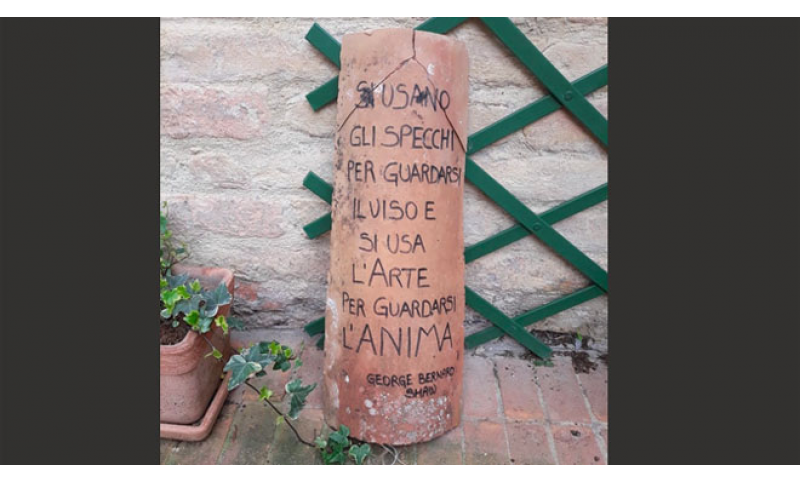 SI USANO
GLI SPECCHI
PER GUARDARSI
IL VISO E
SI USA
L'ARTE
PER GUARDARSI
L'ANIMA
GEORGE BERNARD
SHAW